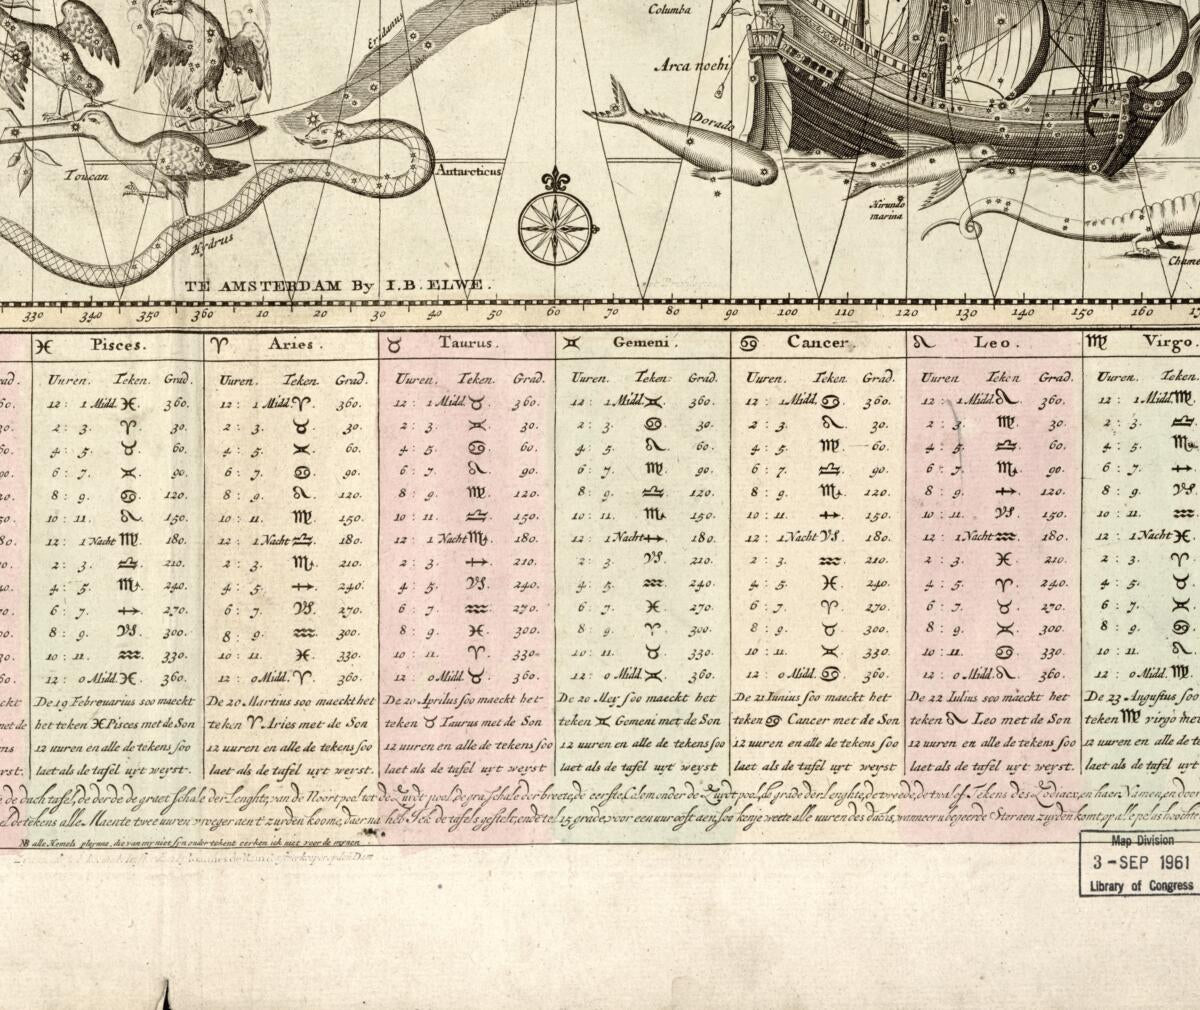 Columba
Arca noehi
Eridanus
Dorado
Toucan
Antarcticus
Hirundo
marina
Hydrus
Chame
TE AMSTERDAM By I.B. ELWE.
330 340 350 360 10 20 30 40 50 60 70 80 90 100 110 120 130 140 150 160 17
♓ Pisces. ♈ Aries. ♉ Taurus. ♊ Gemeni. ♋ Cancer. ♌ Leo. ♍ Virgo.
ad. Uuren. Teken. Grad. Uuren. Teken. Grad. Uuren. Teken. Grad. Uuren. Teken. Grad. Uuren. Teken. Grad. Uuren Teken Grad. Uuren. Teken.
60. 12 : 1 Midd. ♓ 360. 12 : 1 Midd. ♈ 360. 12 : 1 Midd. ♉ 360. 12 : 1 Midd. ♊ 360. 12 : 1 Midd. ♋ 360. 12 : 1 Midd. ♌ 360. 12 : 1 Midd. ♍
30. 2 : 3. ♈ 30. 2 : 3. ♉ 30. 2 : 3. ♊ 30. 2 : 3. ♋ 30. 2 : 3. ♌ 30. 2 : 3. ♍ 30. 2 : 3. ♎
60. 4 : 5. ♉ 60. 4 : 5. ♊ 60. 4 : 5. ♋ 60. 4 : 5. ♌ 60. 4 : 5. ♍ 60. 4 : 5. ♎ 60. 4 : 5. ♏
90. 6 : 7. ♊ 90. 6 : 7. ♋ 90. 6 : 7. ♌ 90. 6 : 7. ♍ 90. 6 : 7. ♎ 90. 6 : 7. ♏ 90. 6 : 7. ♐
20. 8 : 9. ♋ 120. 8 : 9. ♌ 120. 8 : 9. ♍ 120. 8 : 9. ♎ 120. 8 : 9. ♏ 120. 8 : 9. ♐ 120. 8 : 9. ♑
50. 10 : 11. ♌ 150. 10 : 11. ♍ 150. 10 : 11. ♎ 150. 10 : 11. ♏ 150. 10 : 11. ♐ 150. 10 : 11. ♑ 150. 10 : 11. ♒
80. 12 : 1 Nacht ♍ 180. 12 : 1 Nacht ♎ 180. 12 : 1 Nacht ♏ 180. 12 : 1 Nacht ♐ 180. 12 : 1 Nacht ♑ 180. 12 : 1 Nacht ♒ 180. 12 : 1 Nacht ♓
10. 2 : 3. ♎ 210. 2 : 3. ♏ 210. 2 : 3 ♐ 210. 2 : 3. ♑ 210. 2 : 3. ♒ 210. 2 : 3 ♓ 210. 2 : 3. ♈
40. 4 : 5. ♏ 240. 4 : 5. ♐ 240. 4 : 5. ♑ 240. 4 : 5. ♒ 240. 4 : 5. ♓ 240. 4 : 5. ♈ 240. 4 : 5. ♉
70. 6 : 7. ♐ 270. 6 : 7. ♑ 270. 6 : 7. ♒ 270. 6 : 7. ♓ 270. 6 : 7. ♈ 270. 6 : 7. ♉ 270. 6 : 7. ♊
00. 8 : 9. ♑ 300. 8 : 9. ♒ 300. 8 : 9. ♓ 300. 8 : 9. ♈ 300. 8 : 9. ♉ 300. 8 : 9. ♊ 300. 8 : 9. ♋
30. 10 : 11. ♒ 330. 10 : 11. ♓ 330. 10 : 11. ♈ 330. 10 : 11. ♉ 330. 10 : 11. ♊ 330. 10 : 11. ♋ 330. 10 : 11. ♌
60. 12 : 0 Midd. ♓ 360. 12 : 0 Midd. ♈ 360. 12 : 0 Midd. ♉ 360. 12 : 0 Midd. ♊ 360. 12 : 0 Midd. ♋ 360. 12 : 0 Midd. ♌ 360. 12 : 0 Midd. ♍
eckt De 19 Februarius soo maeckt De 20 Martius soo maeckt het De 20 Aprilus soo maeckt het De 20 Mey soo maeckt het De 21 Iunius soo maeckt het De 22 Iulius soo maeckt het De 23 Angustus soo
met de het teken ♓ Pisces met de Son teken ♈ Aries met de Son teken ♉ Taurus met de Son teken ♊ Gemeni met de Son teken ♋ Cancer met de Son teken ♌ Leo met de Son teken ♍ virgo met
ens 12 uuren en alle de tekens soo 12 uuren en alle de tekens soo 12 uuren en alle de tekens soo 12 uuren en alle de tekens soo 12 uuren en alle de tekens soo 12 uuren en alle de tekens soo 12 uuren en alle de te
yrst. laet als de tafel uyt weyst. laet als de tafel uyt weyst. laet als de tafel uyt weyst laet als de tafel uyt weyst laet als de tafel uyt weyst laet als de tafel uyt weyst. laet als de tafel uyt we
de dach tafel, de derde de graet schale der lenghte, van de Noort pool tot de Zuydt pool, de gra schale der breete, de eerste Colom onder de Zuydt pool, de grade der lenghte, de tweede, de twalef Tekens des Zodiacx, en haer Namen, en door
de tekens alle Maente twee uuren vroeger aen't zuyden koome, daer na het Tek de tafels gestelt, ende tel 15 grade voor een uur oost aen, soo kenje weete alle uuren des dachs, wanneer u begeerde Sterren zuyden komt op alle
NB alle Hemels pleynne, die van my niet syn ondertekent eerken ick niet voor de mynen
Map Division
3 - SEP 1961
Library of Congress